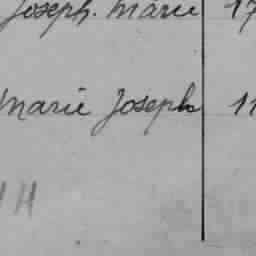 Joseph. Marie 17
Marie Joseph 11
H